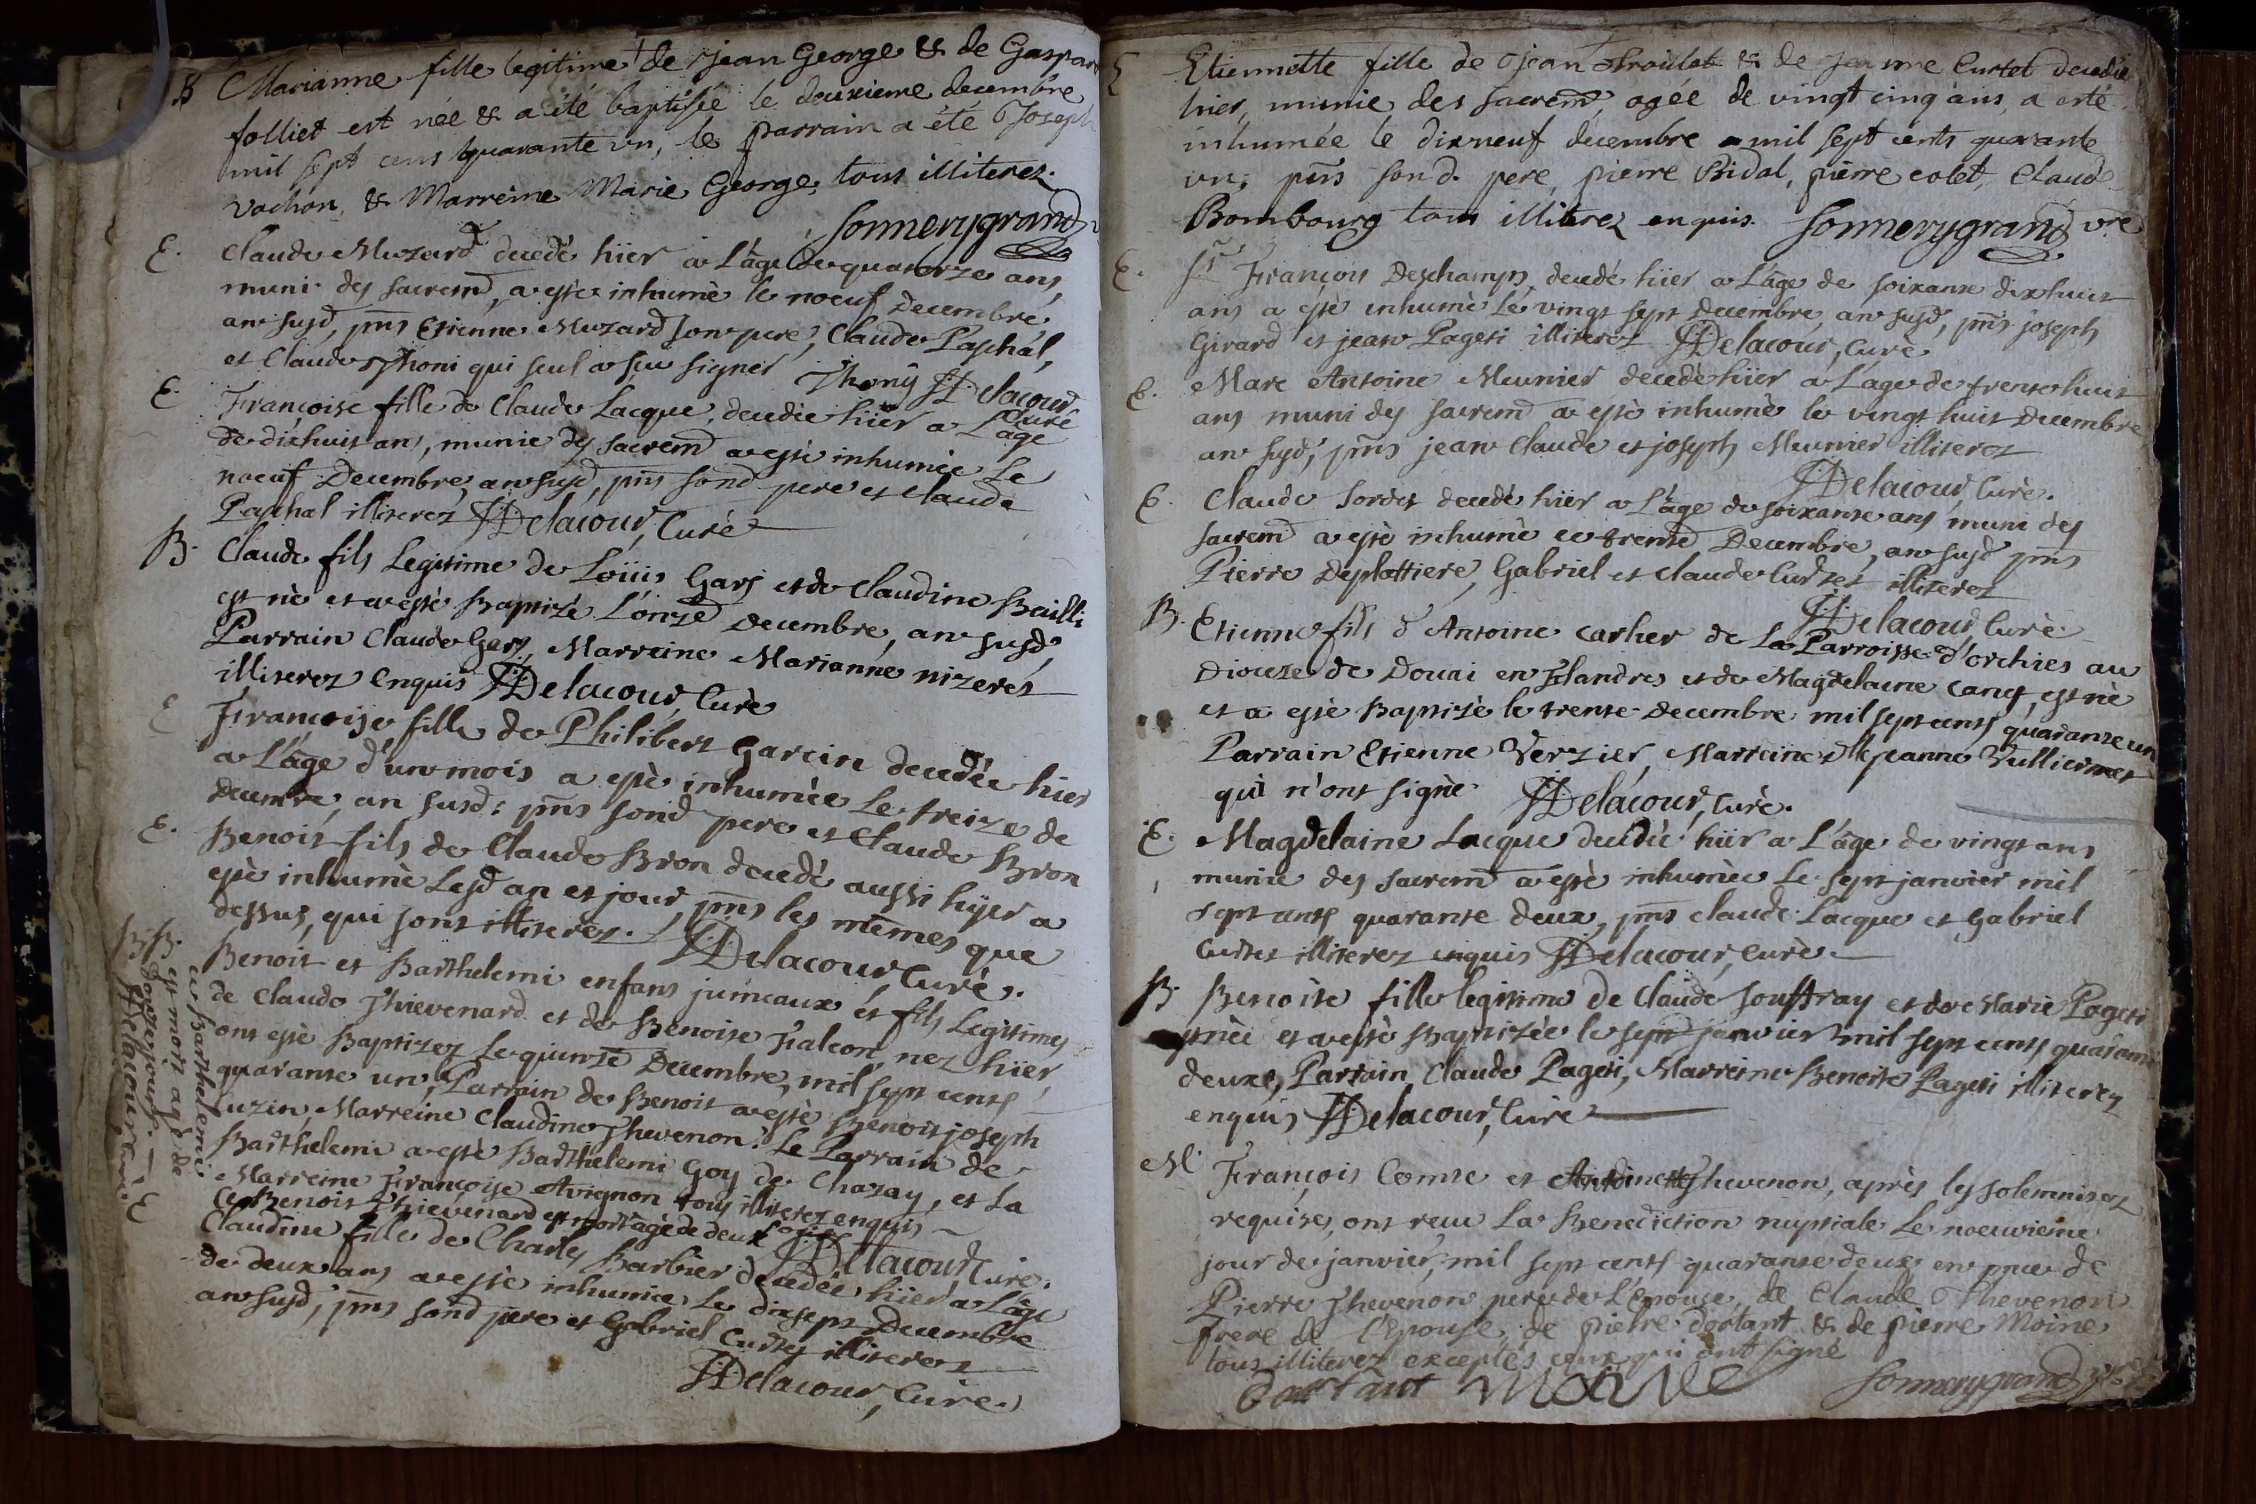 B Marianne fille legitime de Jean George & de Gaspar
folliet est née & a été baptisée le deuxieme decembre
mil sept cens quarante un, le parrain a été Joseph
Vachon, & Marreine Marie George, tous illiterez.
Sonnerygrand
E. Claude Muzard decedé hier a L'âge de quatorze ans,
muni des sacremd, a esté inhumè le noeuf Decembre,
an susd, pns Etienne Muzard son pere, Claude Paschal,
et Claude Thoni qui seul a sçu signer
Thony JDelacour, Curé
E. Françoise fille de Claude Lacque, decedée hiër a L'âge
de dixhuit ans, munie des sacremd a estè inhumèe Le
noeuf Decembre, an susd, pns sond pere et Claude
Paschal illiterez JDelacour, Curè
B. Claude fils Legitime de Loüis Garj et de Claudine Bailli
est nè et a estè Baptizé L'onze Decembre, an susd,
Parrain Claude Garj, Marreine Marianne nizerez
illiterez Enquis JDelacour, Curè
E Françoise fille de Philibert Garcin decedée hier
a L'âge d'un mois a estè inhumèe Le treize de
decembre, an susd: pns sond pere et Claude Bron
E. Benoit fils de Claude Bron decedè aussi hyer a
estè inhumè Lesd an et jour, pns les mêmes que
dessus, qui sont illiterez. JDelacour, Curè.
B. B. Benoit et Barthelemi enfans jumeaux et fils Legitimes
de Claude Thievenard et de Benoite Falcon, nez hiër,
ont estè Baptizez Le quinze Decembre, mil sept cents
quarante un, Parrain de Benoit a estè Benoit joseph
Luzin, Marreine Claudine Thevenon. Le Parrain de
Barthelemi a estè Barthelemi Goy de Chazay, et La
Marreine Françoise Avignon tous illiterez enquis
Ce Benoit Thievenard est mort agè de deux jours
JDelacour, Curè.
ce Barthelemi
est mort agè de
douze jours.
JDelacour Curè
E Claudine fille de Charles Barbier decedée hiër a L'âge
de deux ans a estè inhumèe Le dixsept Decembre
an susd, pns sond pere et Gabriel Curtet illiterez
JDelacour, Curè.
E Etiennette fille de Jean Troillet & de Jeanne Curtet decedée
hier, munie des sacremd, agée de vingt cinq ans, a esté
inhumée le dixneuf decembre mil sept cents quarante
un, pns son d. pere, pierre Bidal, pierre colet, Claude
Bombourg tous illiterez enquis. Sonnerygrand vre
E. Sr François Deschamps, decedé hiër a L'âge de soixante dixhuit
ans a estè inhumè Le vingt sept Decembre, an susd, pns joseph
Girard et jean Pageti illiterez JDelacour, Curè.
E. Marc Antoine Meunier decedè hiër a L'âge de trente huit
ans muni des sacremd a estè inhumè le vingt huit Decembre
an susd, pns jean Claude et joseph Meunier illiterez
JDelacour, Curè.
E. Claude Sordet decedè hiër a L'âge de soixante ans muni des
sacremd a estè inhumè ce trente Decembre, an susd pns
Pierre Deplattiere, Gabriel et Claude Curtet illiterez
JDelacour, Curè
B. Etienne fils d'Antoine Carlier de La Parroisse d'orchies au
Dioceze de Douai en Flandres et de Magdelaine Canet, est nè
et a estè Baptizè le trente Decembre mil sept cents quarante un
Parrain Etienne Verzier, Marreine Dlle Jeanne Vulliermet
qui n'ont signè. JDelacour, Curè.
E. Magdelaine Lacque decedèe hiër a L'âge de vingt ans
munie des sacremd a estè inhumèe Le sept janvier mil
sept cents quarante deux, pns Claude Lacque et Gabriel
Curtet illiterez enquis JDelacour, Curè.
B. Benoite fille legitime de Claude Souffray et de Marie Pageti
est nèe et a estè Baptizèe le sept janvier mil sept cents quarante
deux, Parrain Claude Pageti, Marreine Benoite Pageti illiterez
enquis JDelacour, Curè
M. François Comte et Antoinette Thevenon, après les solemnitez
requises, ont reçu La Benediction nuptiale Le noeuvieme
jour de janvier, mil sept cents quarante deux en pnce de
Pierre Thevenon pere de L'Epouse, de Claude Thevenon
frere de l'Epouse, de pierre dortant & de pierre Moine
tous illiterez exceptés ceux qui ont signé
Dortant Moine Sonnerygrand vre